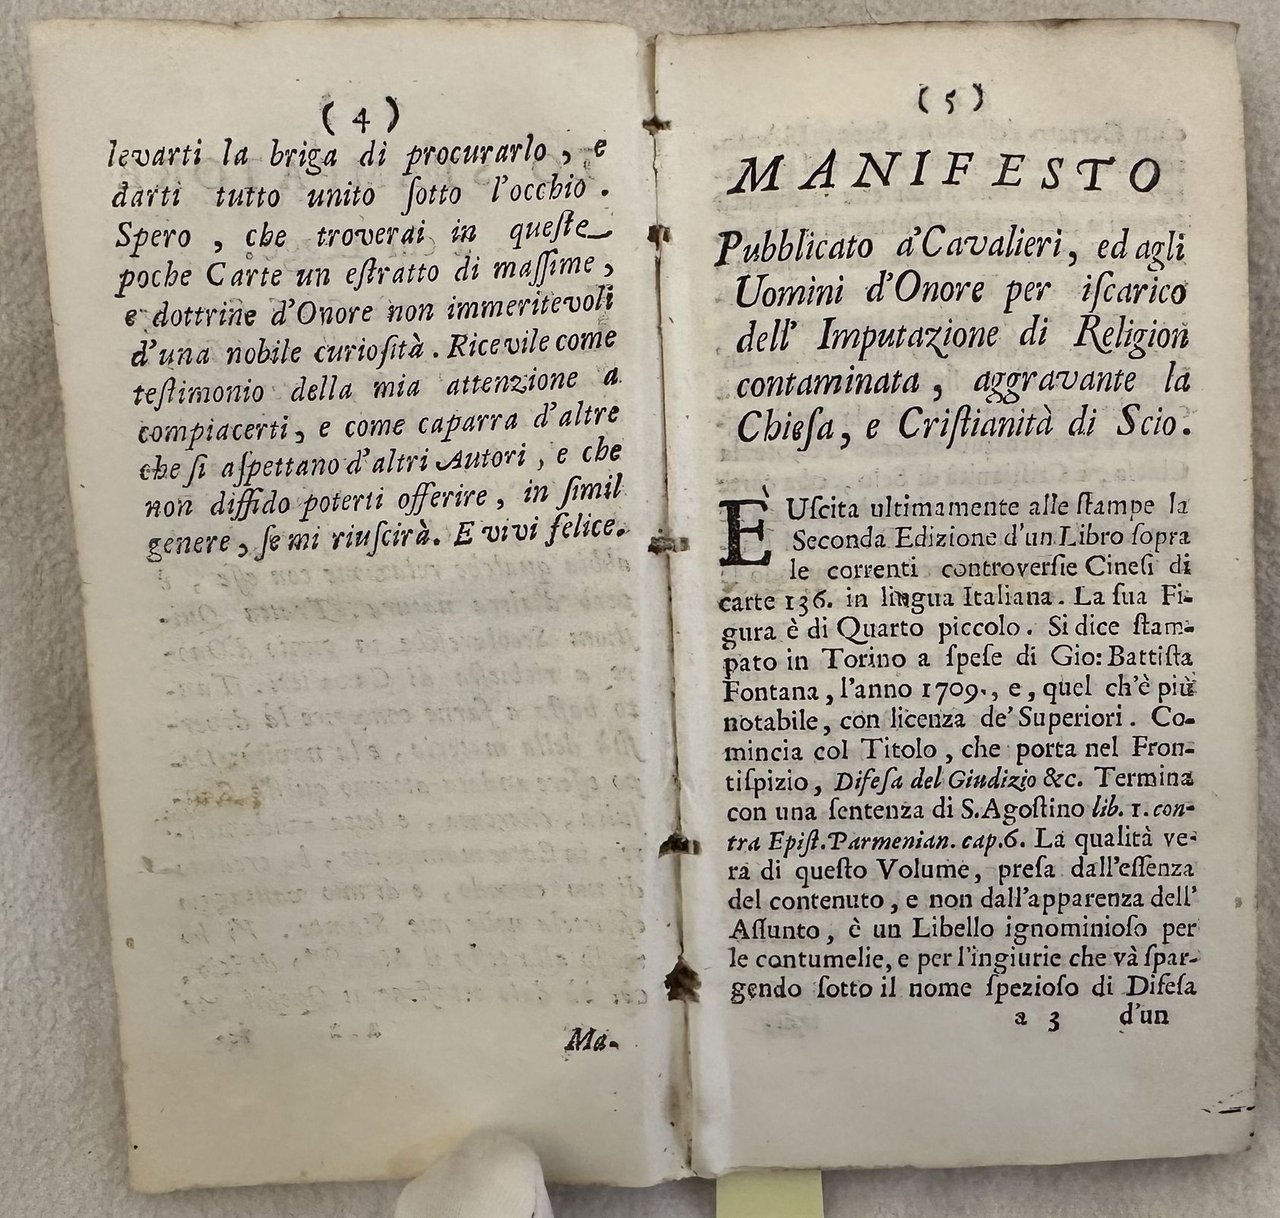 (4)
levarti la briga di procurarlo, e
darti tutto unito ſotto l'occhio.
Spero, che troverai in queſte
poche Carte un eſtratto di maſſime,
e dottrine d'Onore non immeritevoli
d'una nobile curioſità. Ricevile come
teſtimonio della mia attenzione a
compiacerti, e come caparra d'altre
che ſi aſpettano d'altri Autori, e che
non diffido poterti offerire, in ſimil
genere, ſe mi riuſcirà. E vivi felice.
Ma-
(5)
MANIFESTO
Pubblicato a'Cavalieri, ed agli
Uomini d'Onore per iſcarico
dell' Imputazione di Religion
contaminata, aggravante la
Chieſa, e Criſtianità di Scio.
È Uſcita ultimamente alle ſtampe la
Seconda Edizione d'un Libro ſopra
le correnti controverſie Cineſi di
carte 136. in lingua Italiana. La ſua Fi-
gura è di Quarto piccolo. Si dice ſtam-
pato in Torino a ſpeſe di Gio: Battiſta
Fontana, l'anno 1709., e, quel ch'è più
notabile, con licenza de' Superiori. Co-
mincia col Titolo, che porta nel Fron-
tiſpizio, Difeſa del Giudizio &c. Termina
con una ſentenza di S. Agoſtino lib. 1. con-
tra Epiſt. Parmenian. cap. 6. La qualità ve-
ra di queſto Volume, preſa dall'eſſenza
del contenuto, e non dall'apparenza dell'
Aſſunto, è un Libello ignominioſo per
le contumelie, e per l'ingiurie che và ſpar-
gendo ſotto il nome ſpezioſo di Difeſa
a 3 d'un